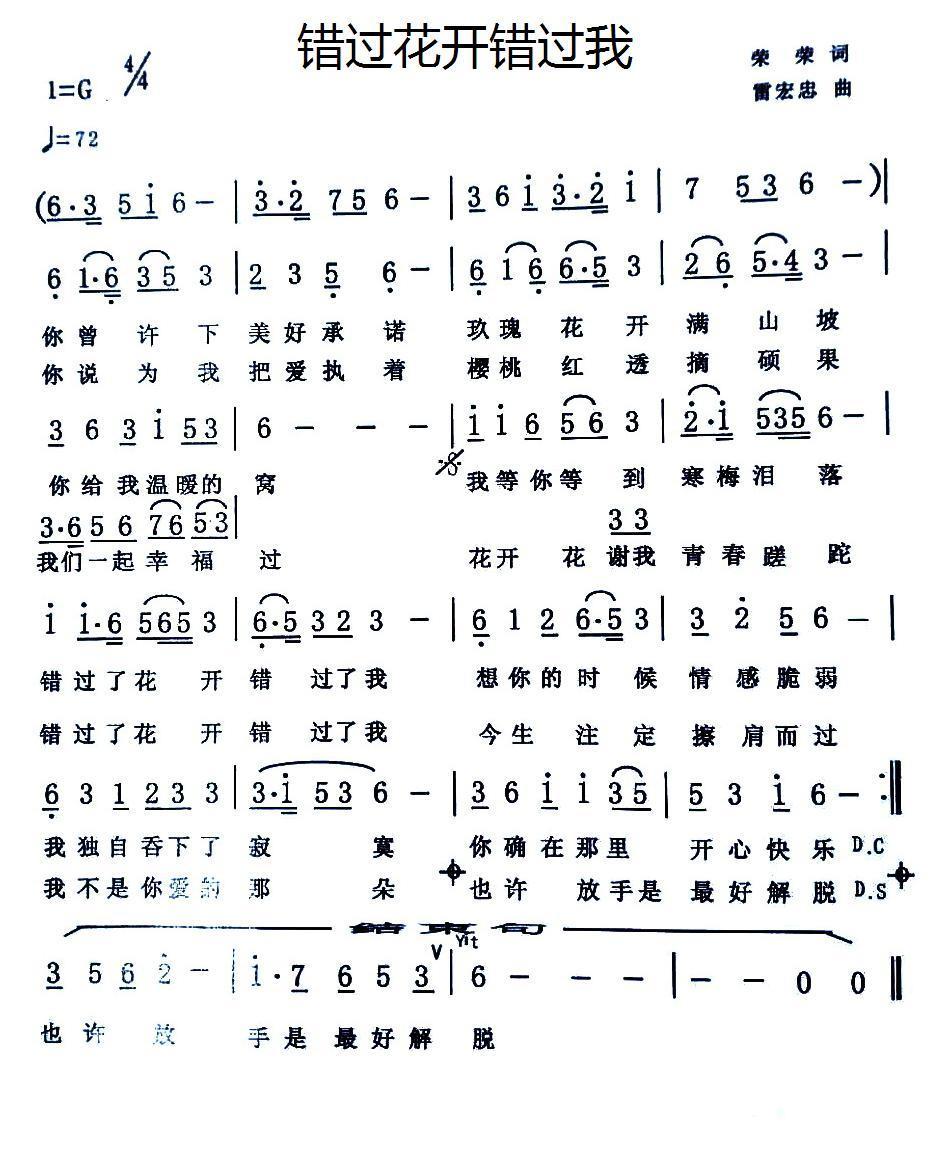 错过花开错过我
荣 荣 词
1=G 4/4
雷宏忠 曲
♩=72
(6·3 5i 6－ | 3·2 75 6－ | 3 6 i 3·2 i | 7 53 6 －)|
6 1·6 35 3 | 2 3 5 6－ | 6 1 6 6·5 3 | 26 5·4 3－ |
你曾许下美好承诺 玫瑰花开满山坡
你说为我把爱执着 樱桃红透摘硕果
3 6 3 i 53 | 6 － － － | i i 6 56 3 | 2·i 535 6－ |
你给我温暖的窝 我等你等到寒梅泪落
3·6 56 76 53 | 3 3
我们一起幸福过 花开花谢我青春蹉跎
i i·6 565 3 | 6·5 32 3 － | 6 1 2 6·5 3 | 3 2 5 6 － |
错过了花开错过了我 想你的时候情感脆弱
错过了花开错过了我 今生注定擦肩而过
6 3 1 233 3 | 3·i 53 6 － | 3 6 i i 35 | 5 3 i 6 － :‖
我独自吞下了寂寞 你确在那里开心快乐 D.C
我不是你爱的那朵 也许放手是最好解脱 D.S
结束句
V Yit
3 5 6 2 － | i·7 6 5 3 | 6 － － － | － － 0 0 ‖
也许放手是最好解脱